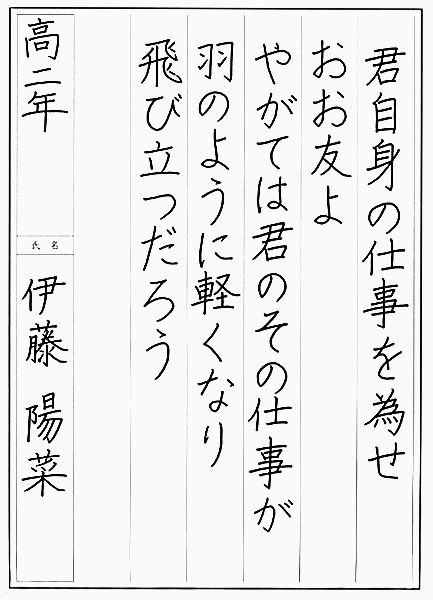 君自身の仕事を為せ
おお友よ
やがては君のその仕事が
羽のように軽くなり
飛び立つだろう
高二年
氏名
伊藤 陽菜